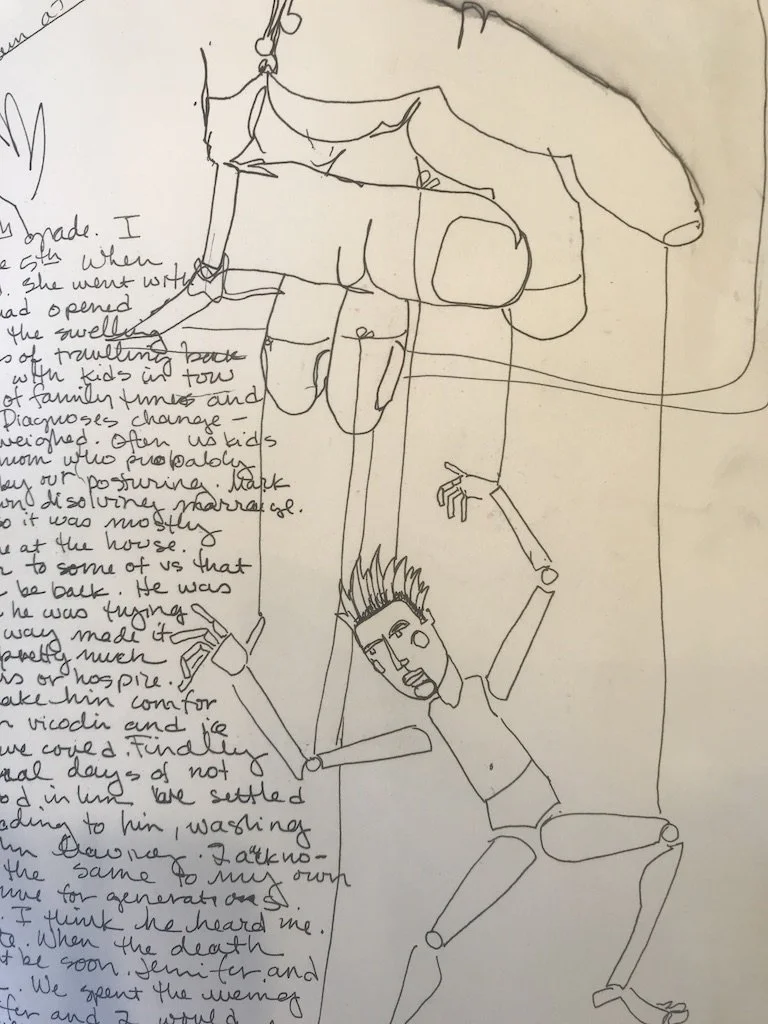 grade. I
e 5th when
. She went with
had opened
the swelling
s of travelling back
with kids in tow
of family times and
Diagnoses change –
weighed. Often us kids
mom who probably
by our posturing. Mark
wn disolving marraige.
so it was mostly
e at the house.
to some of us that
be back. He was
he was trying
way made it
pretty much
is or hospice.
ake him comfor
n vicodin and ice
we coved. Findley
days of not
od in him we settled
ading to him, washing
the same to my own
for generations.
. I think he heard me.
When the death
t be soon. Jenifer and
. We spent the
fer and I would